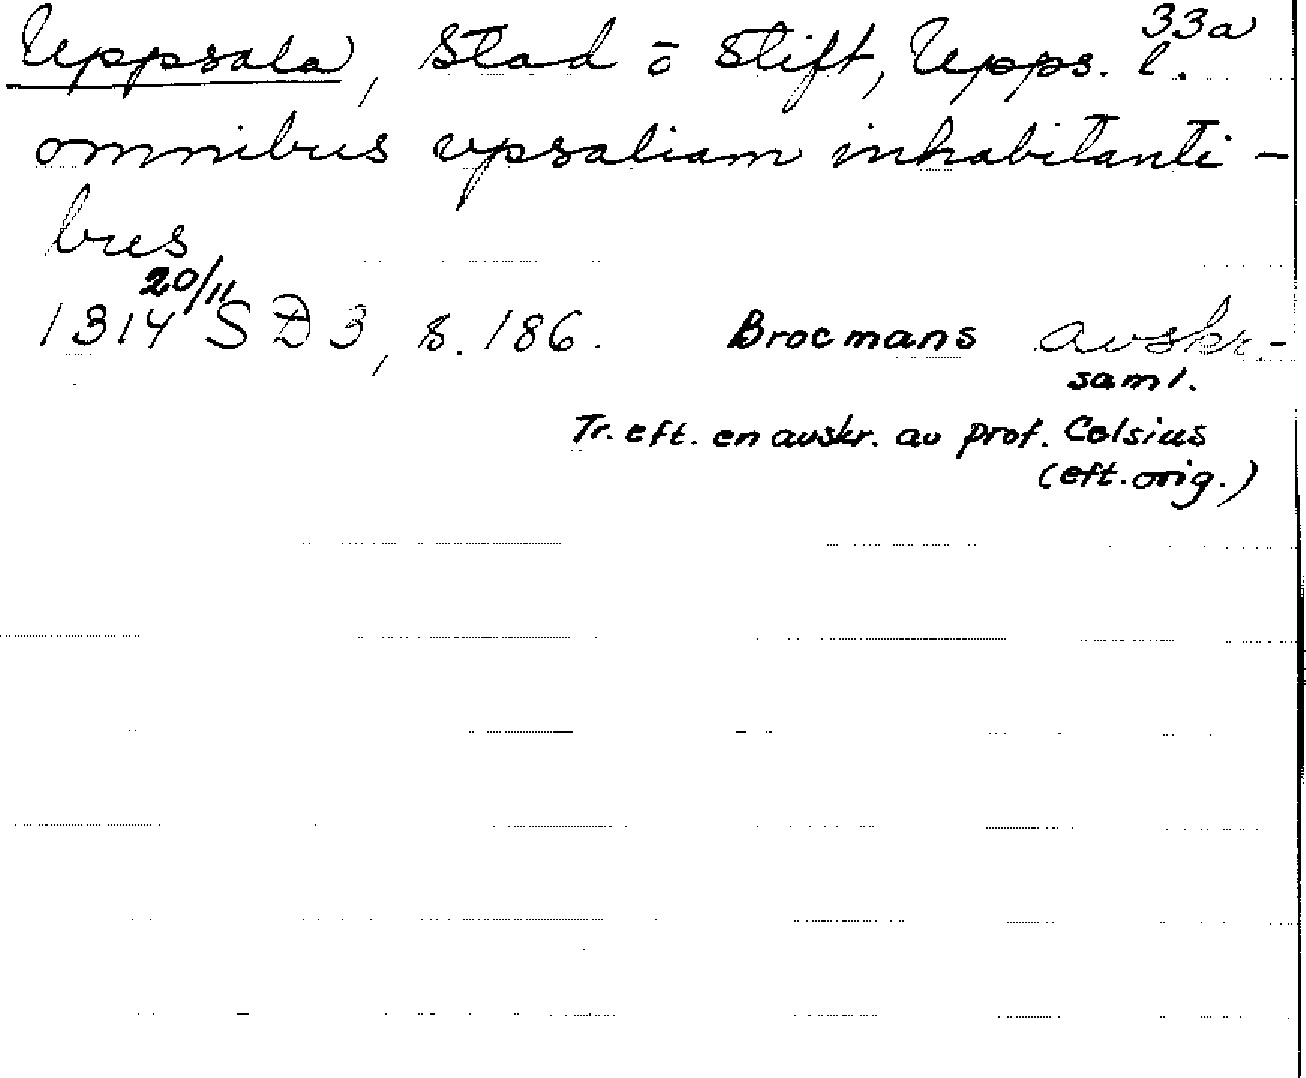 33a
Uppsala, Stad ō Stift, Upps. l.
omnibus vpsaliam inhabitanti-
bus
1314 20/11 SD 3, s. 186. Brocmans avskr.-
saml.
Tr. eft. en avskr. av prof. Celsius
(eft. orig.)